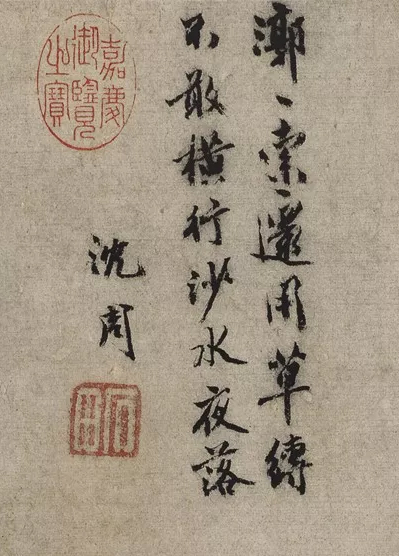 漷〻索〻還用草縛
不敢橫行沙水夜落
沈周
啓南
嘉慶
御覽
之寶